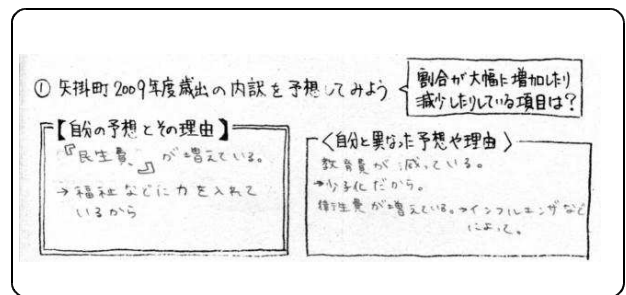 ① 矢掛町2009年度歳出の内訳を予想してみよう
割合が大幅に増加したり
減少したりしている項目は?
【自分の予想とその理由】
『民生費』が増えている。
→福祉などに力を入れて
いるから
〈自分と異なった予想や理由〉
教育費が減っている。
→少子化だから。
衛生費が増えている。→インフルエンザなど
によって。